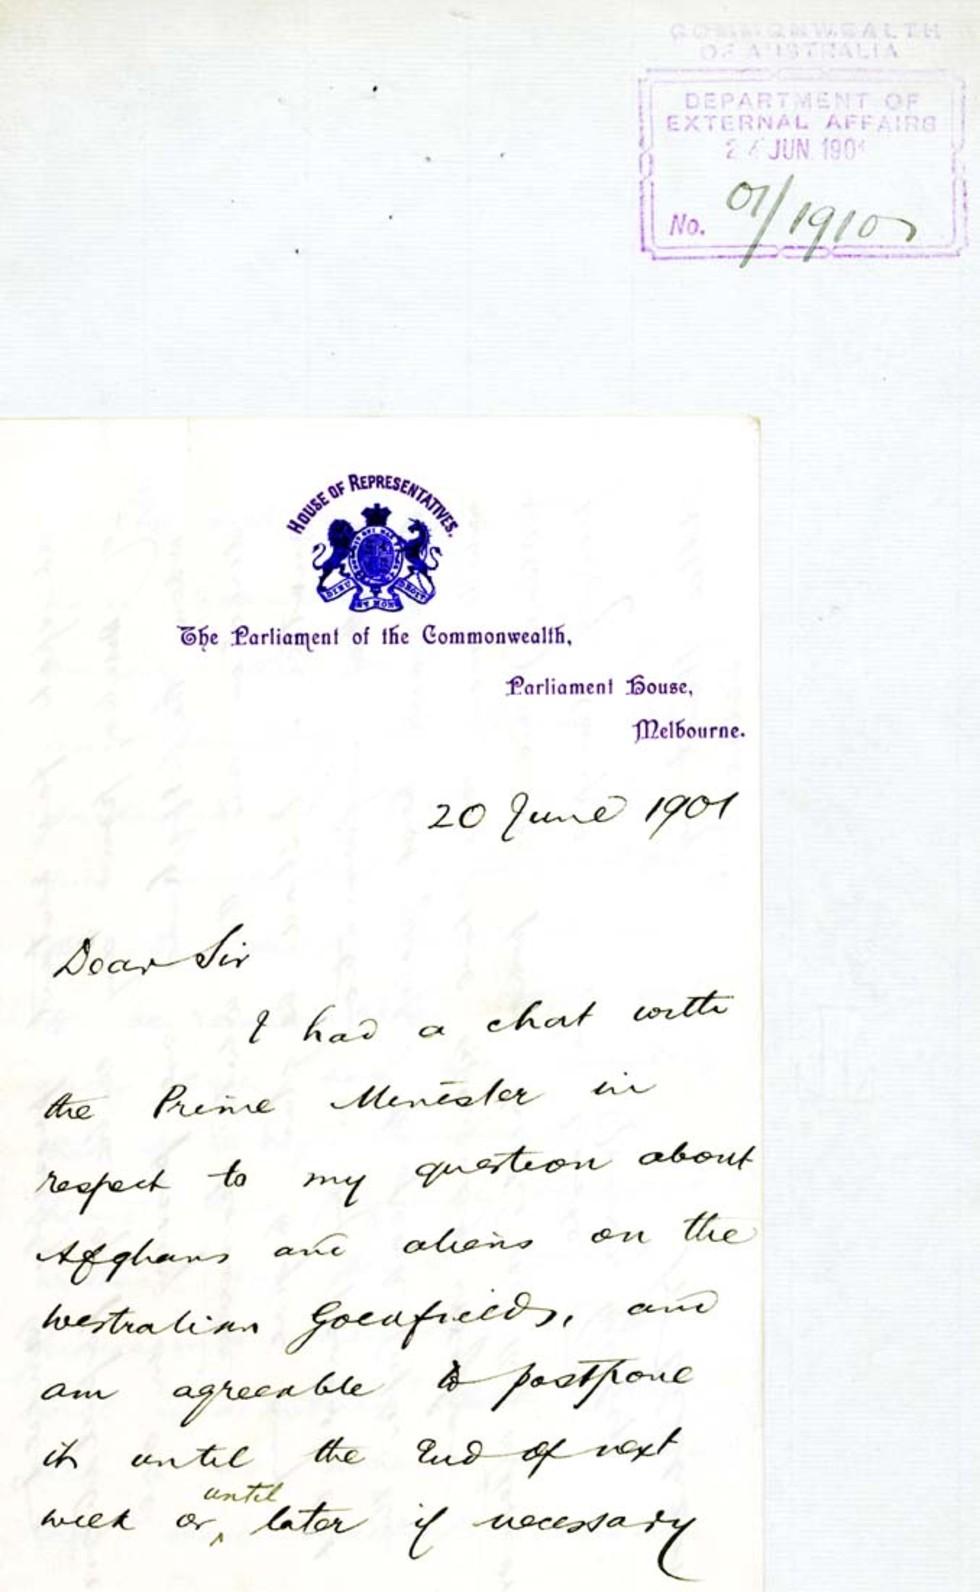 COMMONWEALTH
OF AUSTRALIA
DEPARTMENT OF
EXTERNAL AFFAIRS
JUN 1901
No. 01/1910
HOUSE OF REPRESENTATIVES.
DIEU ET MON DROIT
The Parliament of the Commonwealth,
Parliament House,
Melbourne.
20 June 1901
Dear Sir
I had a chat with
the Prime Minister in
respect to my question about
Afghans and aliens on the
Westralian Goldfields, and
am agreeable to postpone
it until the End of next
week or until later if necessary